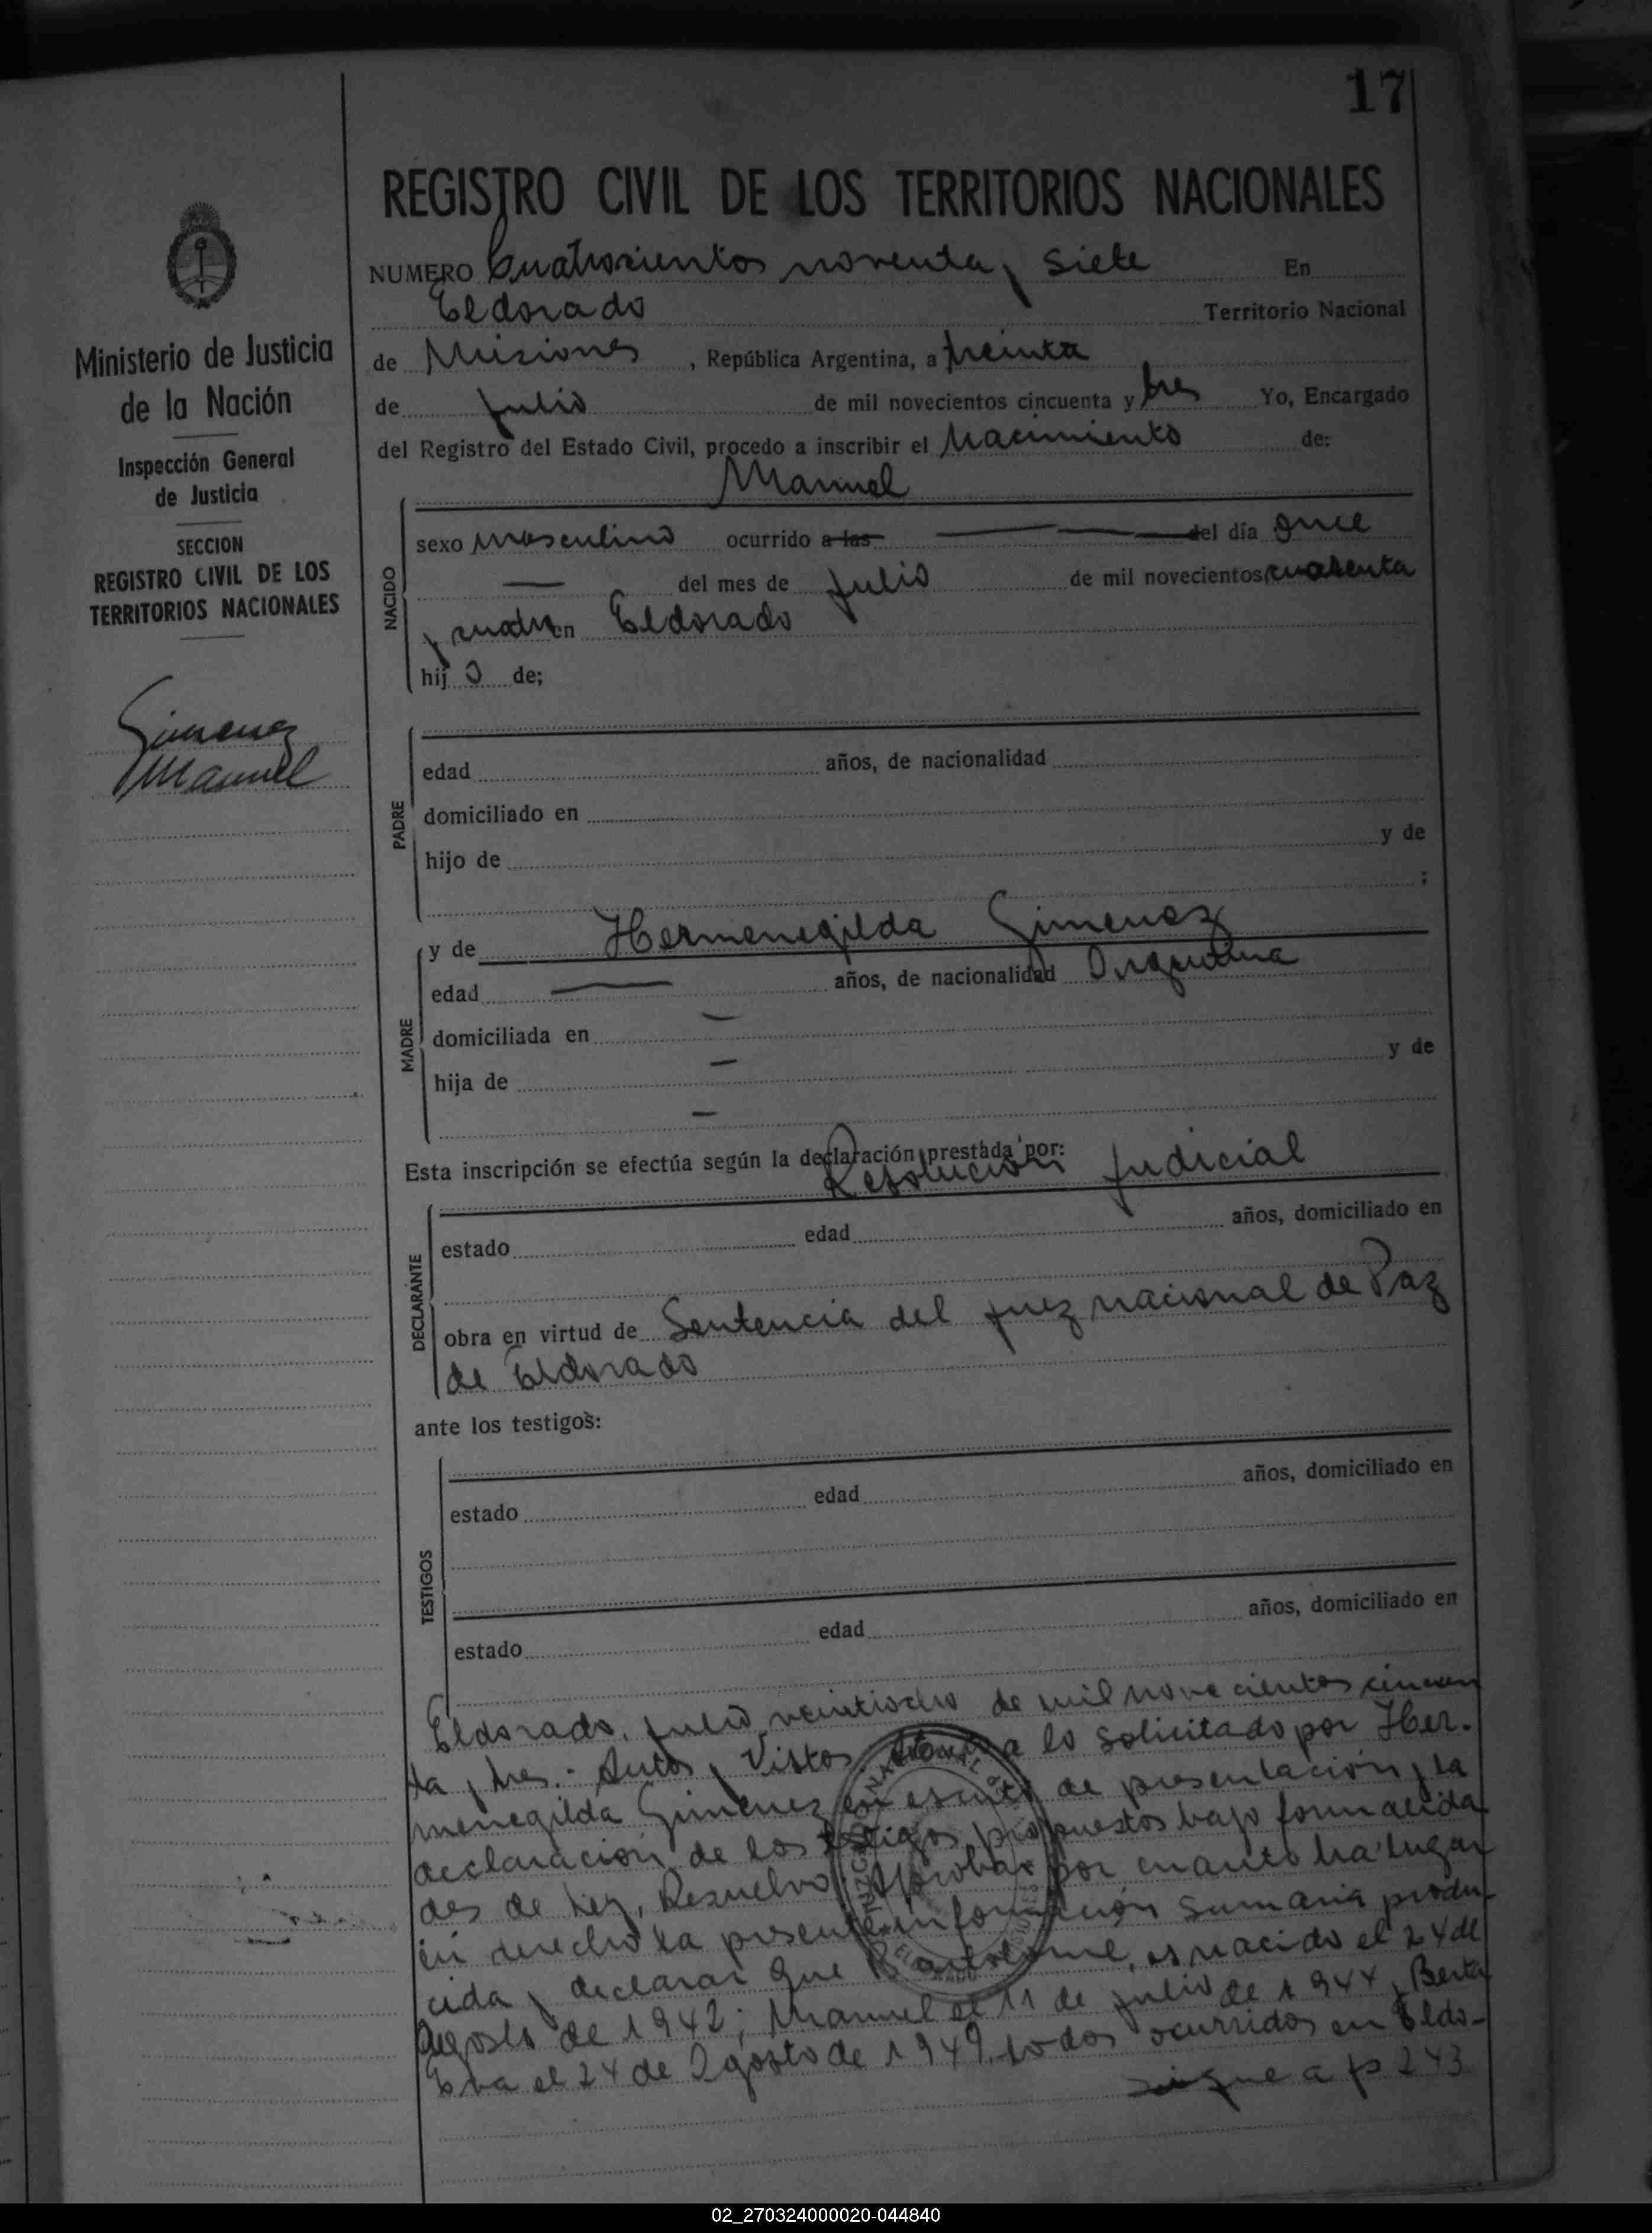 17
REGISTRO CIVIL DE LOS TERRITORIOS NACIONALES
NUMERO Cuatrocientos noventa y siete En
Eldorado Territorio Nacional
de Misiones, República Argentina, a treinta
de Julio de mil novecientos cincuenta y tres Yo, Encargado
del Registro del Estado Civil, procedo a inscribir el Nacimiento de:
Manuel
NACIDO
sexo masculino ocurrido a las del día once
del mes de Julio de mil novecientos cuarenta
y cuatro en Eldorado
hijo de;
PADRE
edad años, de nacionalidad
domiciliado en
hijo de y de
;
MADRE
y de Hermenegilda Gimenez
edad años, de nacionalidad Argentina
domiciliada en
hija de y de
Esta inscripción se efectúa según la declaración prestada por:
Resolución Judicial
DECLARANTE
estado edad años, domiciliado en
obra en virtud de Sentencia del juez nacional de Paz
de Eldorado
ante los testigos:
TESTIGOS
estado edad años, domiciliado en
estado edad años, domiciliado en
Eldorado, julio veintiocho de mil novecientos cincuen
ta y tres.- Autos y Vistos a lo solicitado por Her-
menegilda Gimenez en escrito de presentación y la
declaración de los testigos propuestos bajo formalida
des de Ley, Resuelvo: Aprobar por cuanto ha lugar
en derecho la presente información sumaria produ-
cida y declarar que Bartolome, es nacido el 24 de
Agosto de 1942; Manuel el 11 de julio de 1944 y Berta
Eva el 24 de Agosto de 1949. todos ocurridos en Eldo-
sigue a fs 243
Ministerio de Justicia
de la Nación
Inspección General
de Justicia
SECCION
REGISTRO CIVIL DE LOS
TERRITORIOS NACIONALES
Gimenez
Manuel
02_270324000020-044840